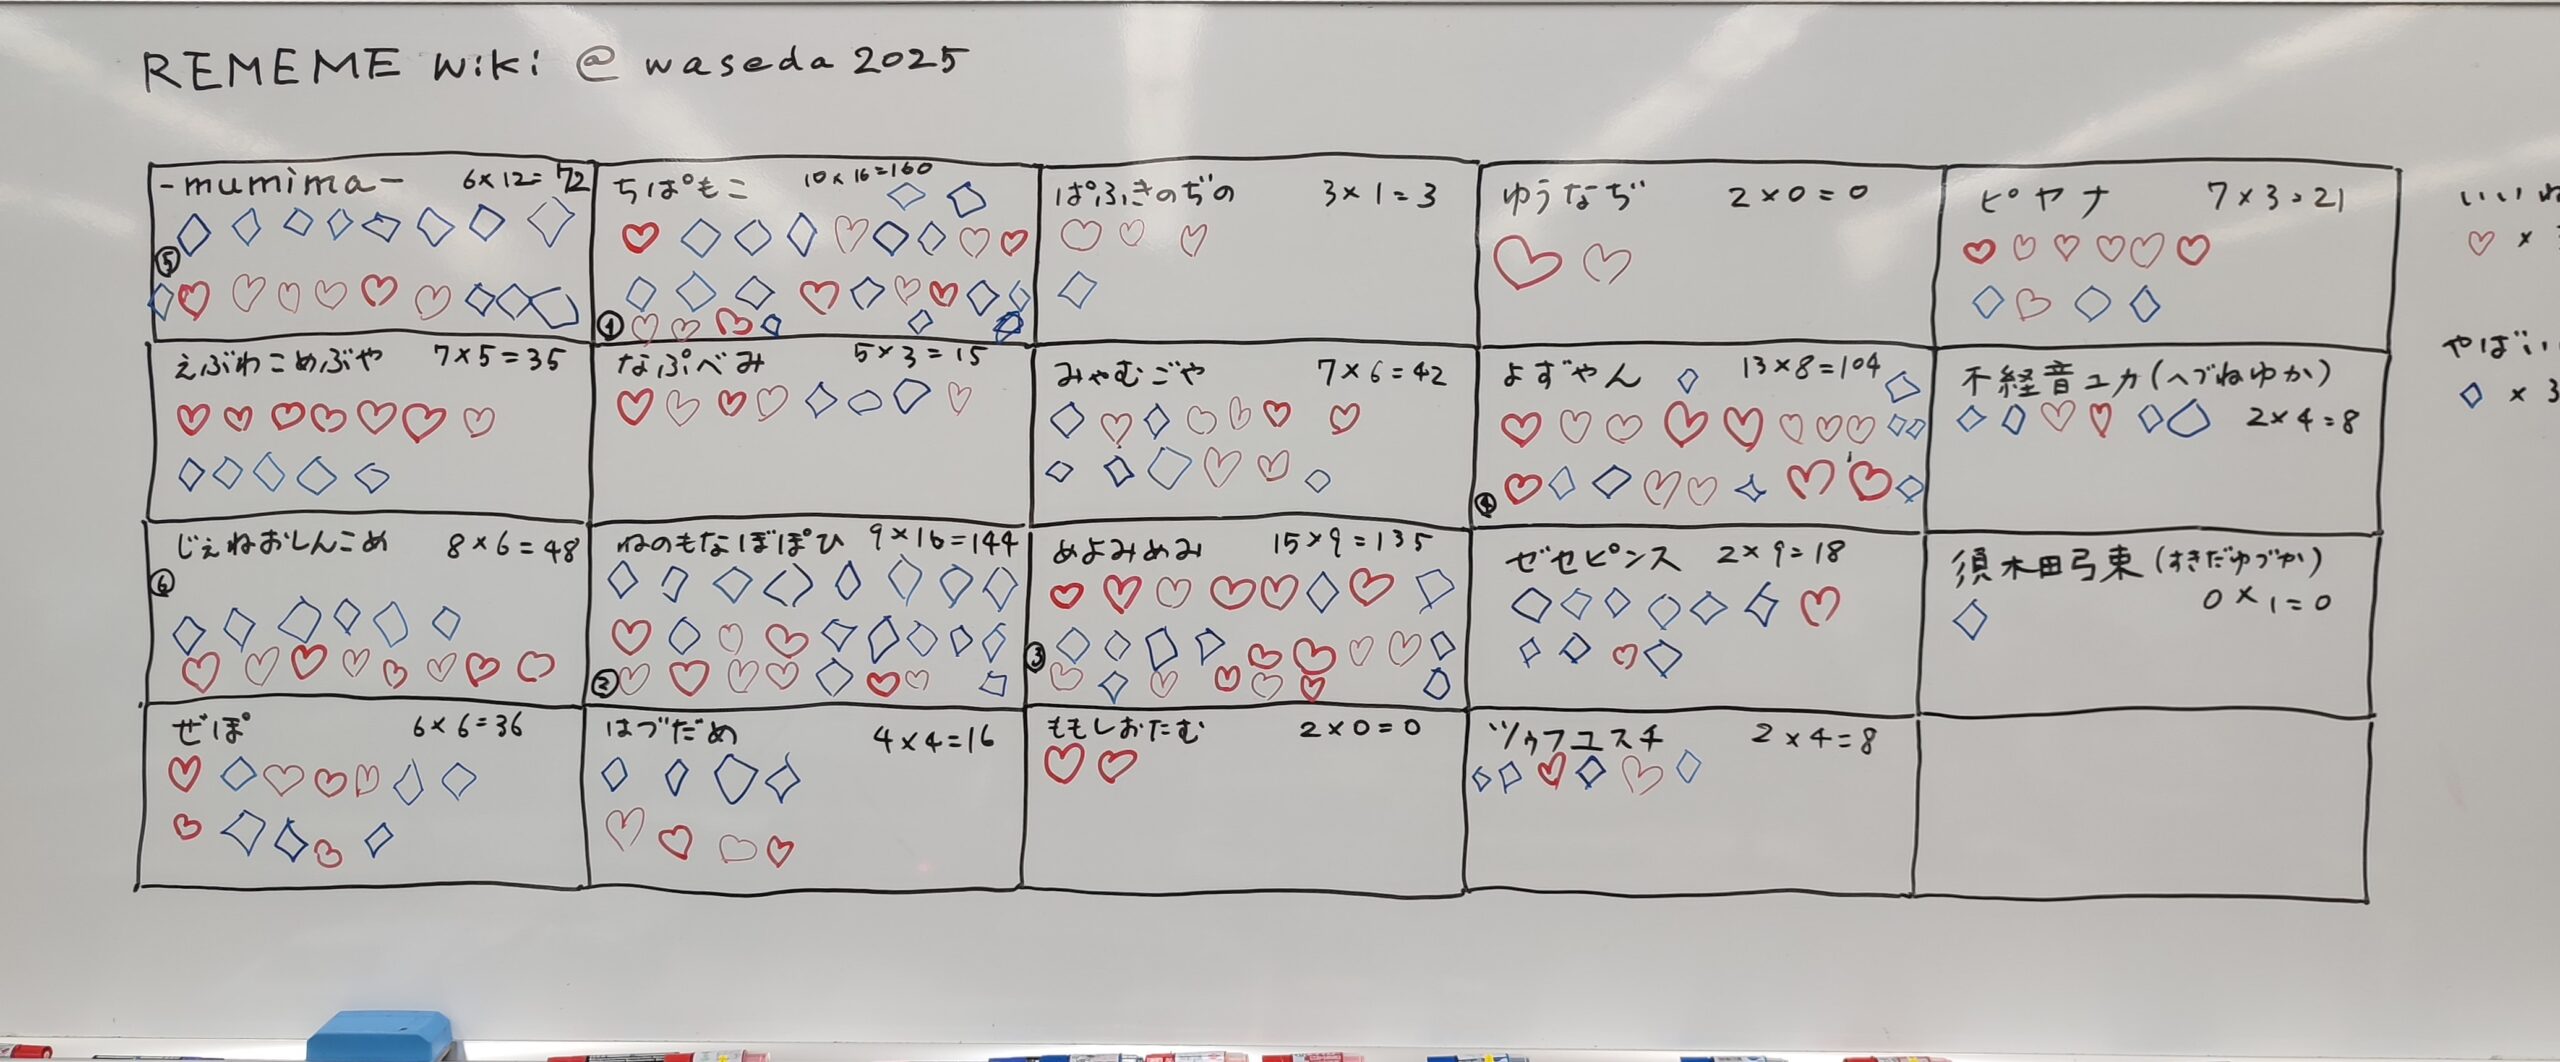 REMEME wiki @ waseda 2025
-mumima- 6×12=72
⑤
ちぱもこ 10×16=160
①
ぱふきのぢの 3×1=3
ゆうなぢ 2×0=0
ピヤナ 7×3=21
えぶわこめぶや 7×5=35
なぷべみ 5×3=15
みゃむごや 7×6=42
よずやん 13×8=104
④
不経音ユカ(へづねゆか)
2×4=8
じぇねおしんこめ 8×6=48
⑥
ねのもなぼぽひ 9×16=144
②
めよみめみ 15×9=135
③
ゼセピンス 2×9=18
須木田弓東(すきだゆづか)
0×1=0
ぜぽ 6×6=36
はづだめ 4×4=16
ももしおたむ 2×0=0
ツゥフユスチ 2×4=8
いいね
♡×
やばい
◇×3